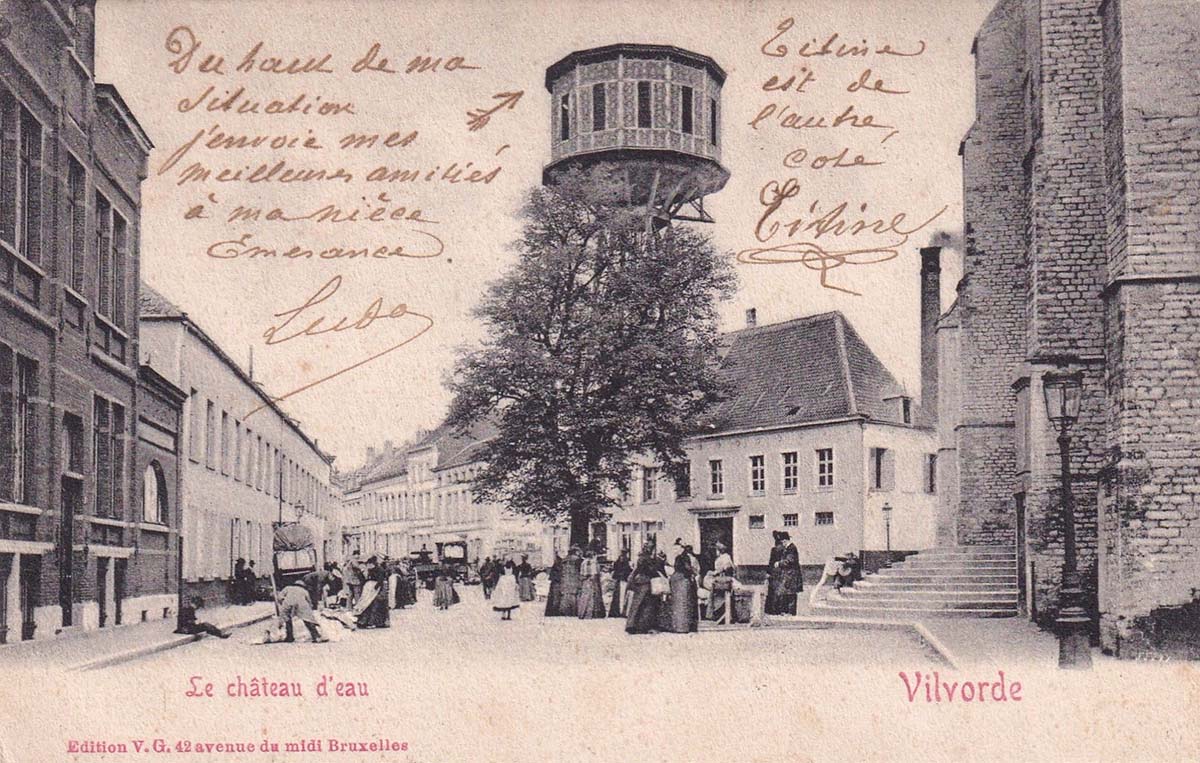 Du haut de ma
situation
j'envoie mes
meilleures amitiés
à ma nièce
Émerance
Titine
est de
l'autre
coté
Titine
Le château d'eau
Vilvorde
Edition V. G. 42 avenue du midi Bruxelles